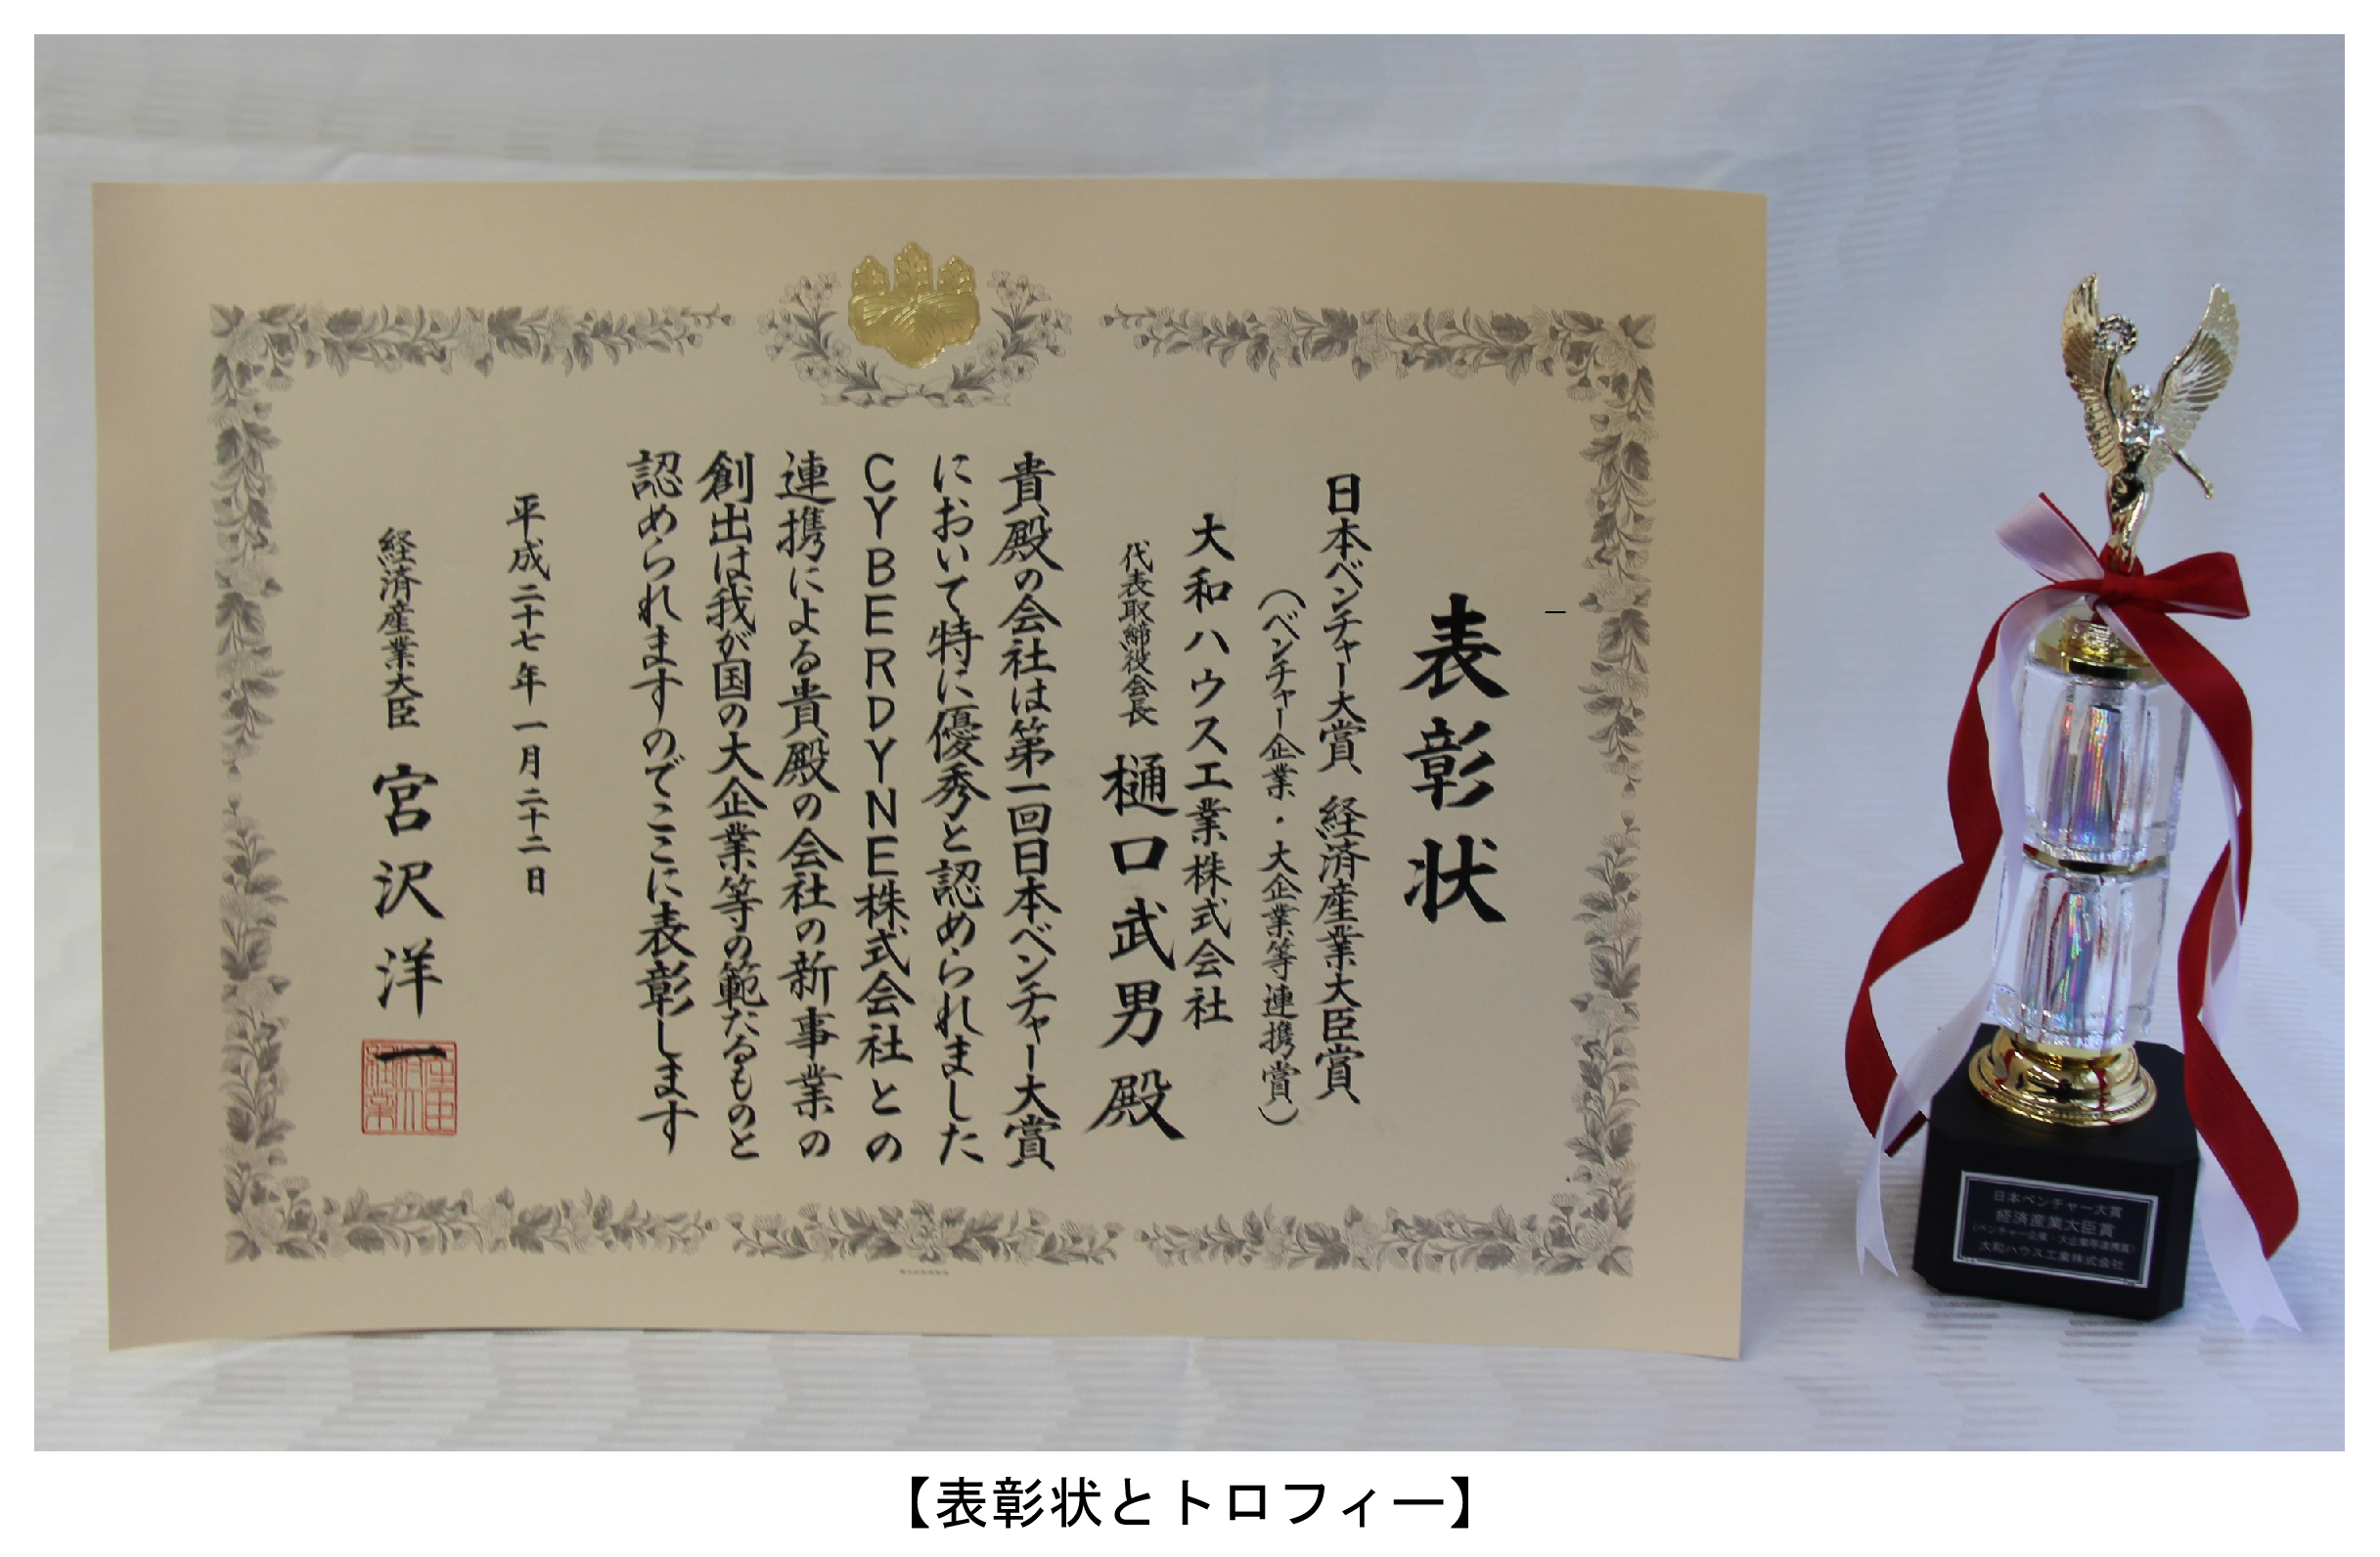 表彰状
日本ベンチャー大賞 経済産業大臣賞
（ベンチャー企業・大企業等連携賞）
大和ハウス工業株式会社
代表取締役会長 樋口武男殿
貴殿の会社は第一回日本ベンチャー大賞
において特に優秀と認められました
CYBERDYNE株式会社との
連携による貴殿の会社の新事業の
創出は我が国の大企業等の範たるものと
認められますのでここに表彰します
平成二十七年一月二十二日
経済産業大臣 宮沢洋一
日本ベンチャー大賞
経済産業大臣賞
（ベンチャー企業・大企業等連携賞）
大和ハウス工業株式会社
【表彰状とトロフィー】